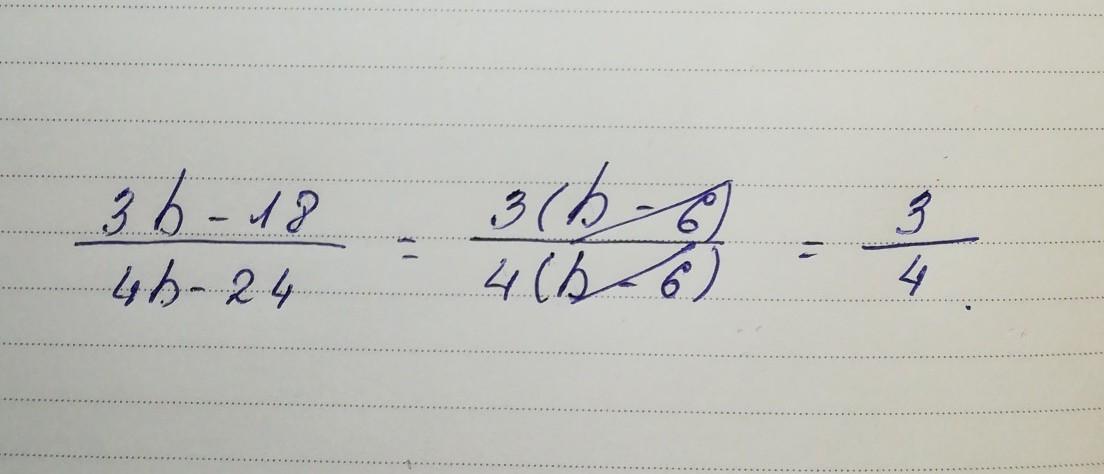 3b - 18 / 4b - 24 = 3(b - 6) / 4(b - 6) = 3 / 4.